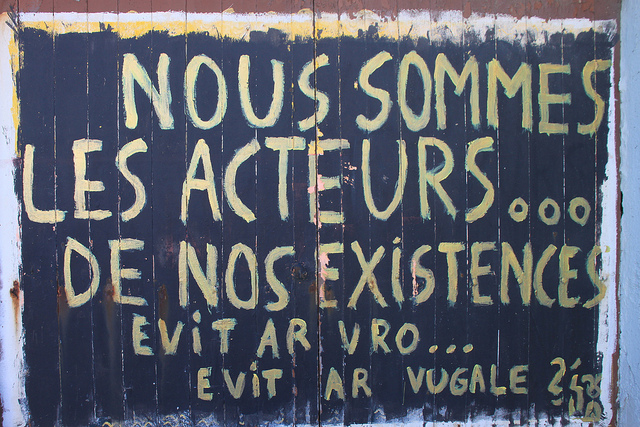 NOUS SOMMES
LES ACTEURS...
DE NOS EXiSTENCES
EViT AR VRO...
EViT AR VUGALE